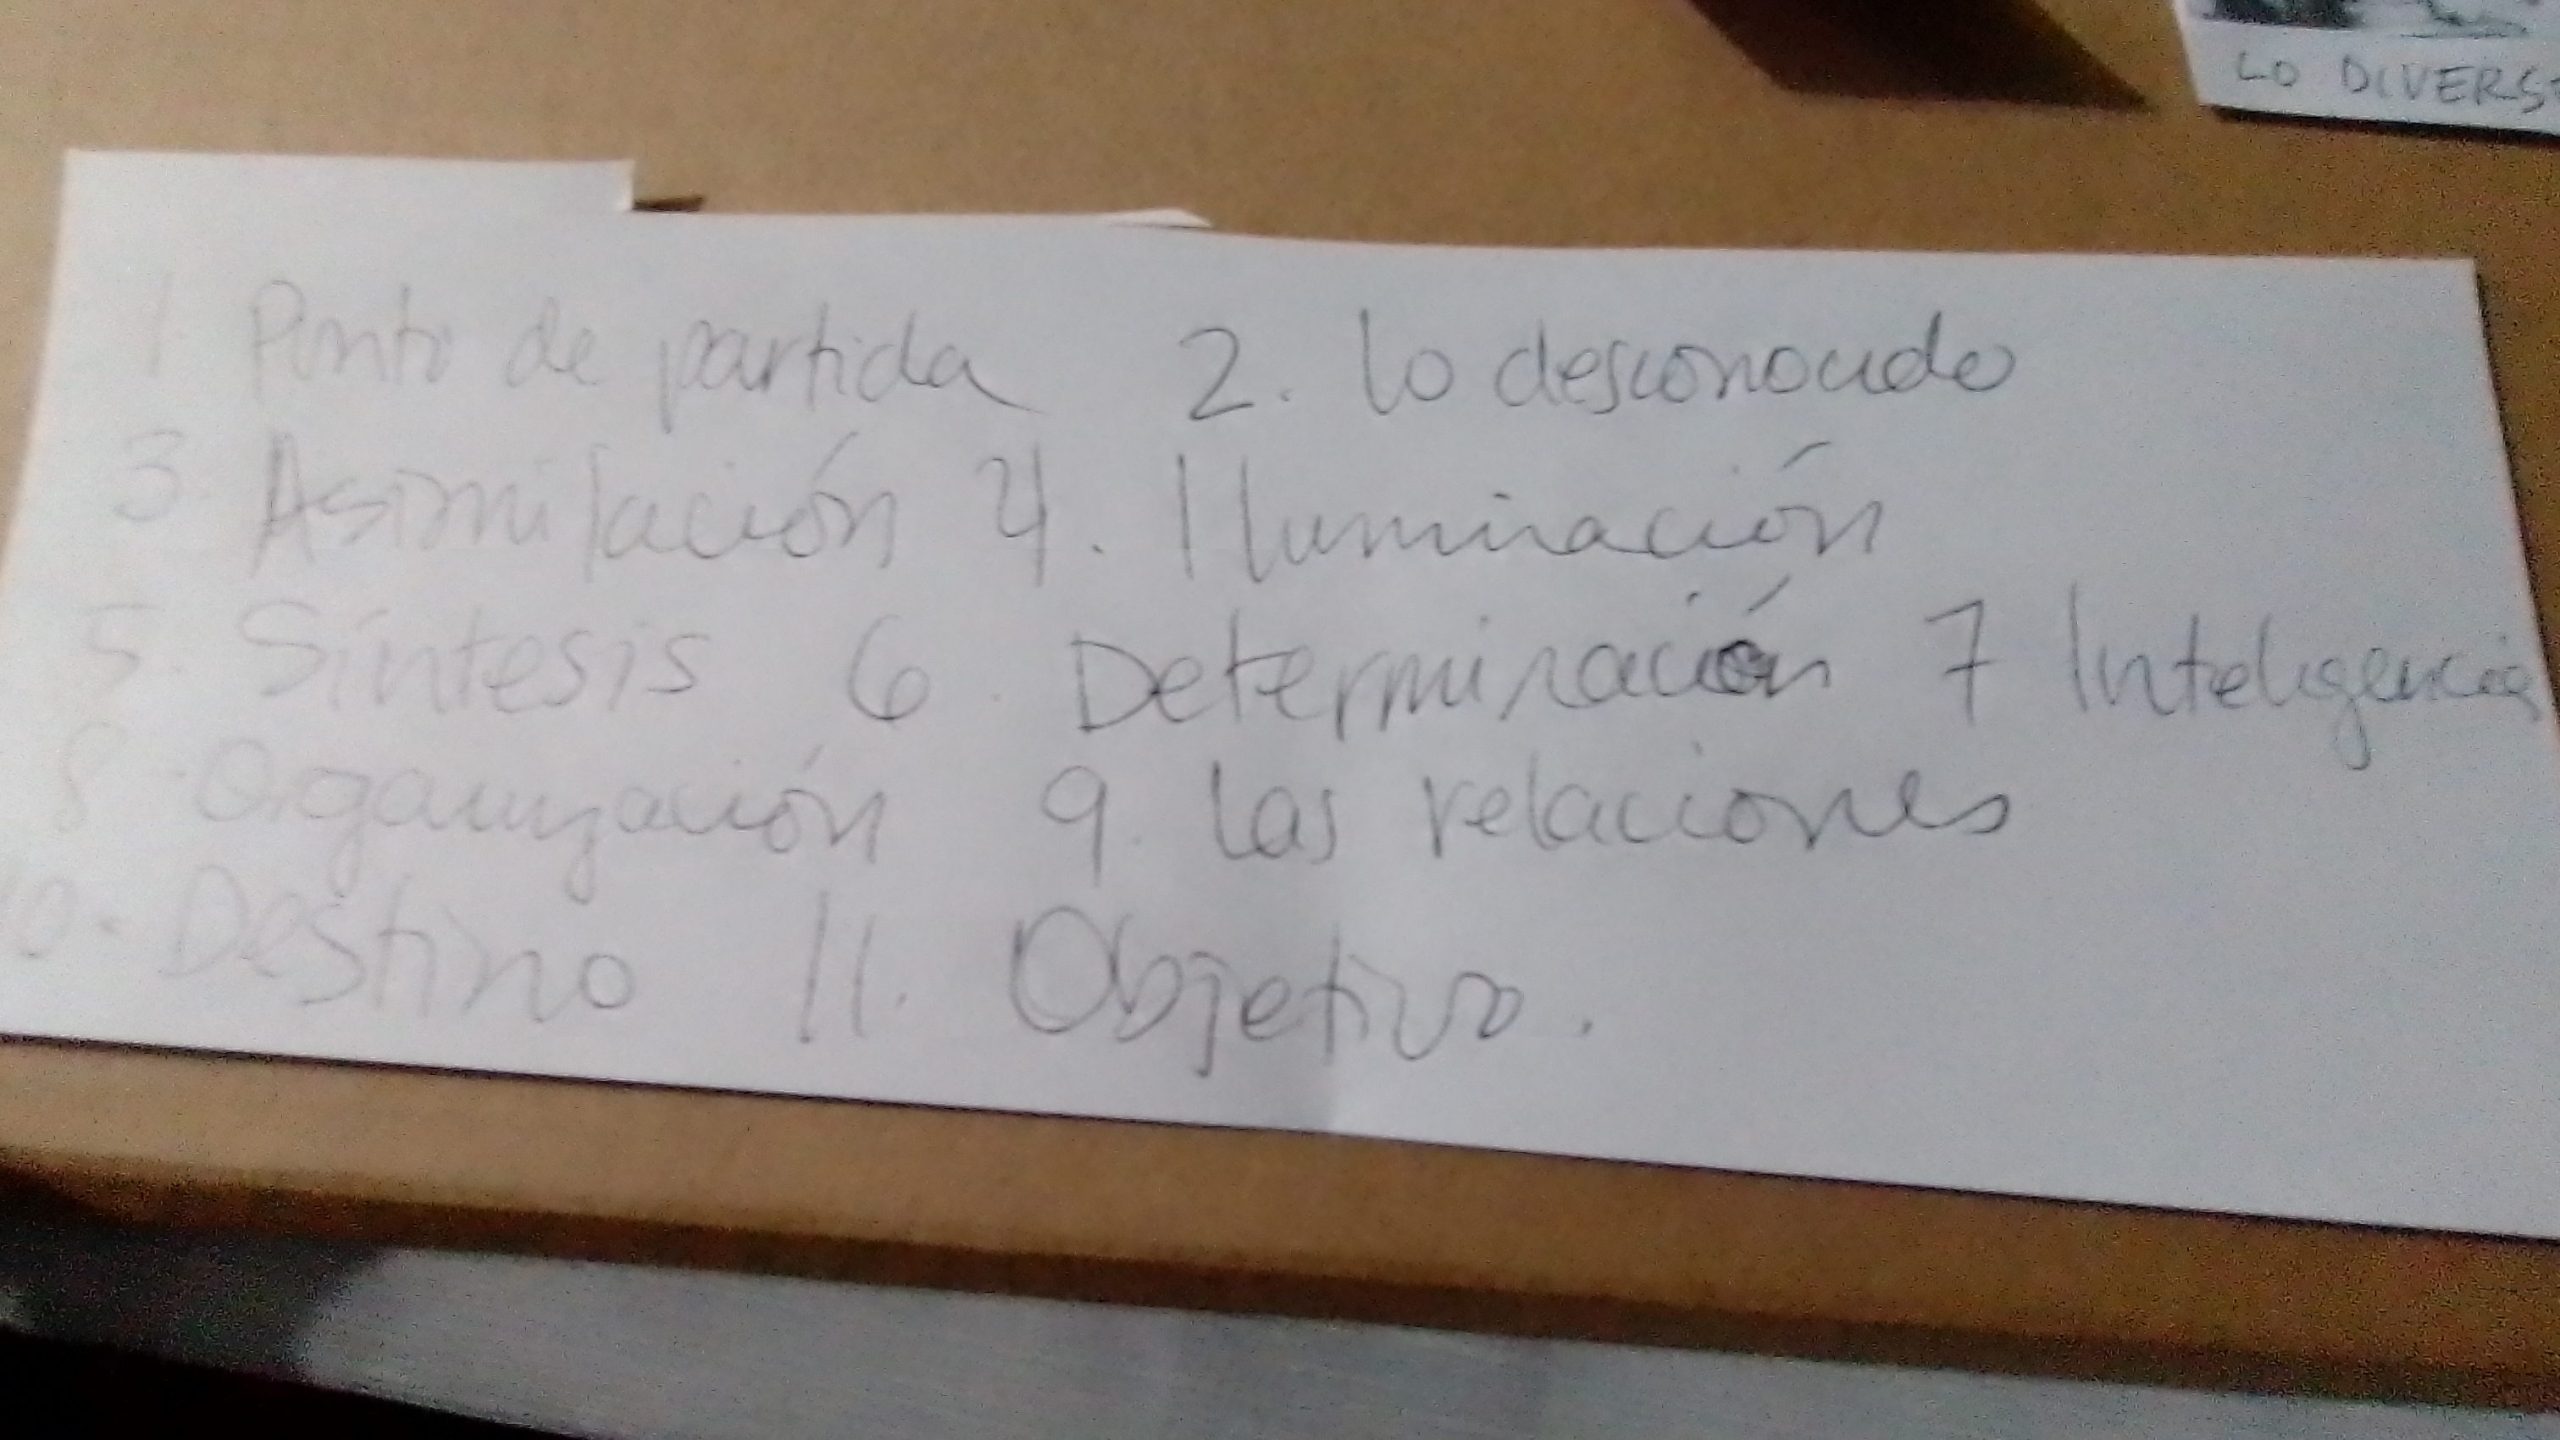 LO DIVERSO
1. Punto de partida 2. lo desconocido
3. Asimilación 4. Iluminación
5. Síntesis 6. Determinación 7 Inteligencia
8. Organización 9. las relaciones
10. Destino 11. Objetivo.